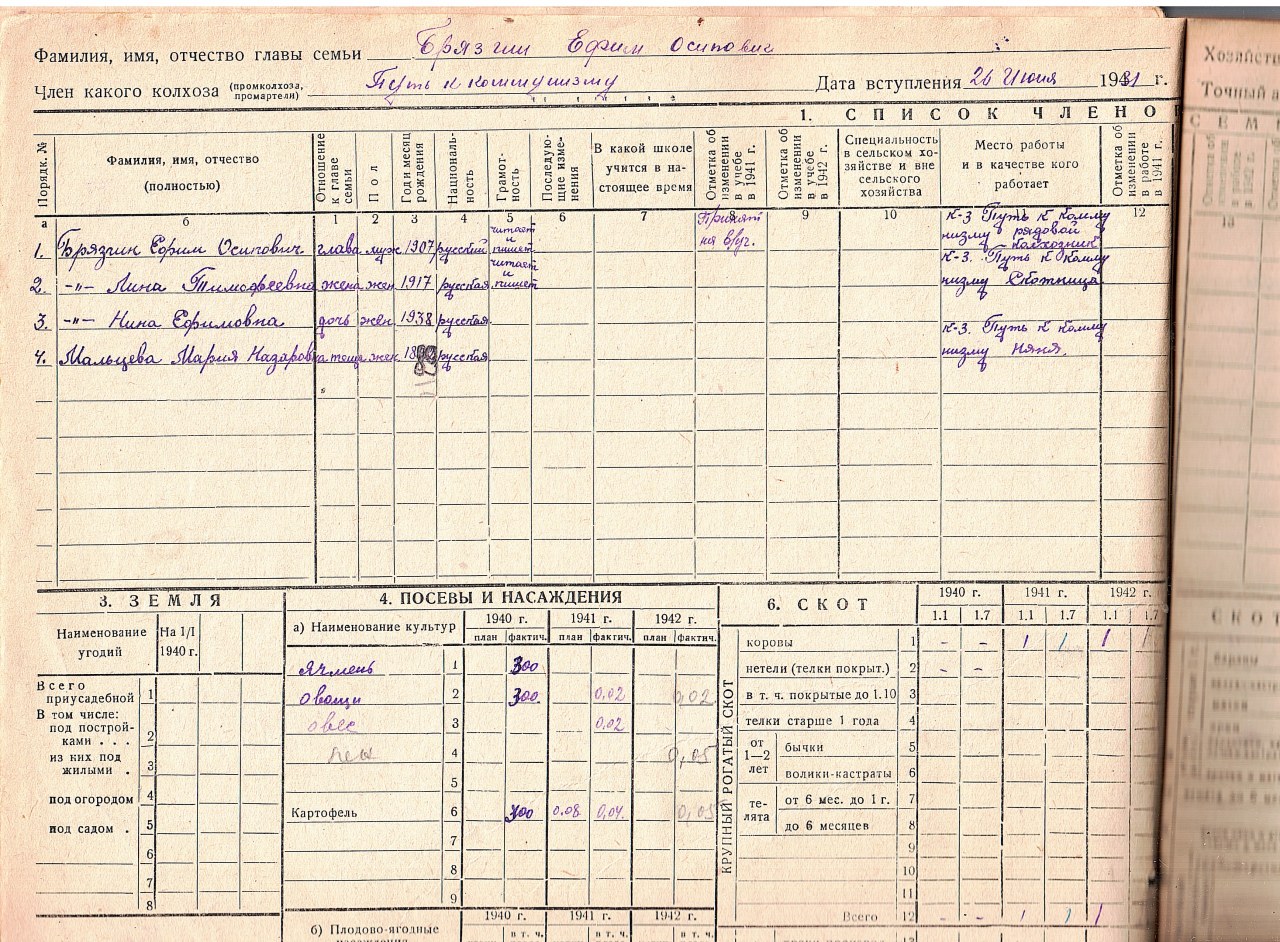 Фамилия, имя, отчество главы семьи Брязгин Ефим Осипович
Член какого колхоза (промколхоза, промартели) Путь к коммунизму Дата вступления 26 Июня 1931 г.
1. СПИСОК ЧЛЕНО
Порядк. №
Фамилия, имя, отчество (полностью)
Отношение к главе семьи
Пол
Год и месяц рождения
Националь-ность
Грамот-ность
Последую-щие изме-нения
В какой школе учится в на-стоящее время
Отметка об изменении в учебе в 1941 г.
Отметка об изменении в учебе в 1942 г.
Специальность в сельском хо-зяйстве и вне сельского хозяйства
Место работы и в качестве кого работает
Отметка об изменении в работе в 1941 г.
а б 1 2 3 4 5 6 7 8 9 10 11 12
1. Брязгин Ефим Осипович глава муж 1907 русский читает и пишет Принят на в/уч. к-з Путь к комму низму рядовой колхозник
2. -"- Лина Тимофеевна жена жен 1917 русская читает и пишет к-з. Путь к комму низму Скотница
3. -"- Нина Ефимовна дочь жен. 1938 русская
4. Мальцева Мария Назаровна теща жен русская к-з. Путь к комму низму няня.
3. ЗЕМЛЯ
Наименование угодий На 1/I 1940 г.
Всего приусадебной 1
В том числе:
под построй-ками . . . 2
из них под жилыми . 3
под огородом 4
под садом . 5
6
7
8
4. ПОСЕВЫ И НАСАЖДЕНИЯ
а) Наименование культур 1940 г. 1941 г. 1942 г.
план фактич. план фактич. план фактич.
Ячмень 1 300
овощи 2 300 0,02 0,02
овес 3 0,02
4 0,05
5
Картофель 6 0.08 0,04. 0,05
7
8
9
1940 г. 1941 г. 1942 г.
б) Плодово-ягодные в т. ч. в т. ч. в т. ч.
6. СКОТ
1940 г. 1941 г. 1942 г.
1.1 1.7 1.1 1.7 1.1 1.7
КРУПНЫЙ РОГАТЫЙ СКОТ
коровы 1 - - 1 1 1 1
нетели (телки покрыт.) 2 - -
в т. ч. покрытые до 1.10 3
телки старше 1 года 4
от 1—2 лет
бычки 5
волики-кастраты 6
те-лята
от 6 мес. до 1 г. 7
до 6 месяцев 8
9
10
11
Всего 12 - - 1 1 1
Хозяйств
Точный а
СЕМ
13
СКОТ